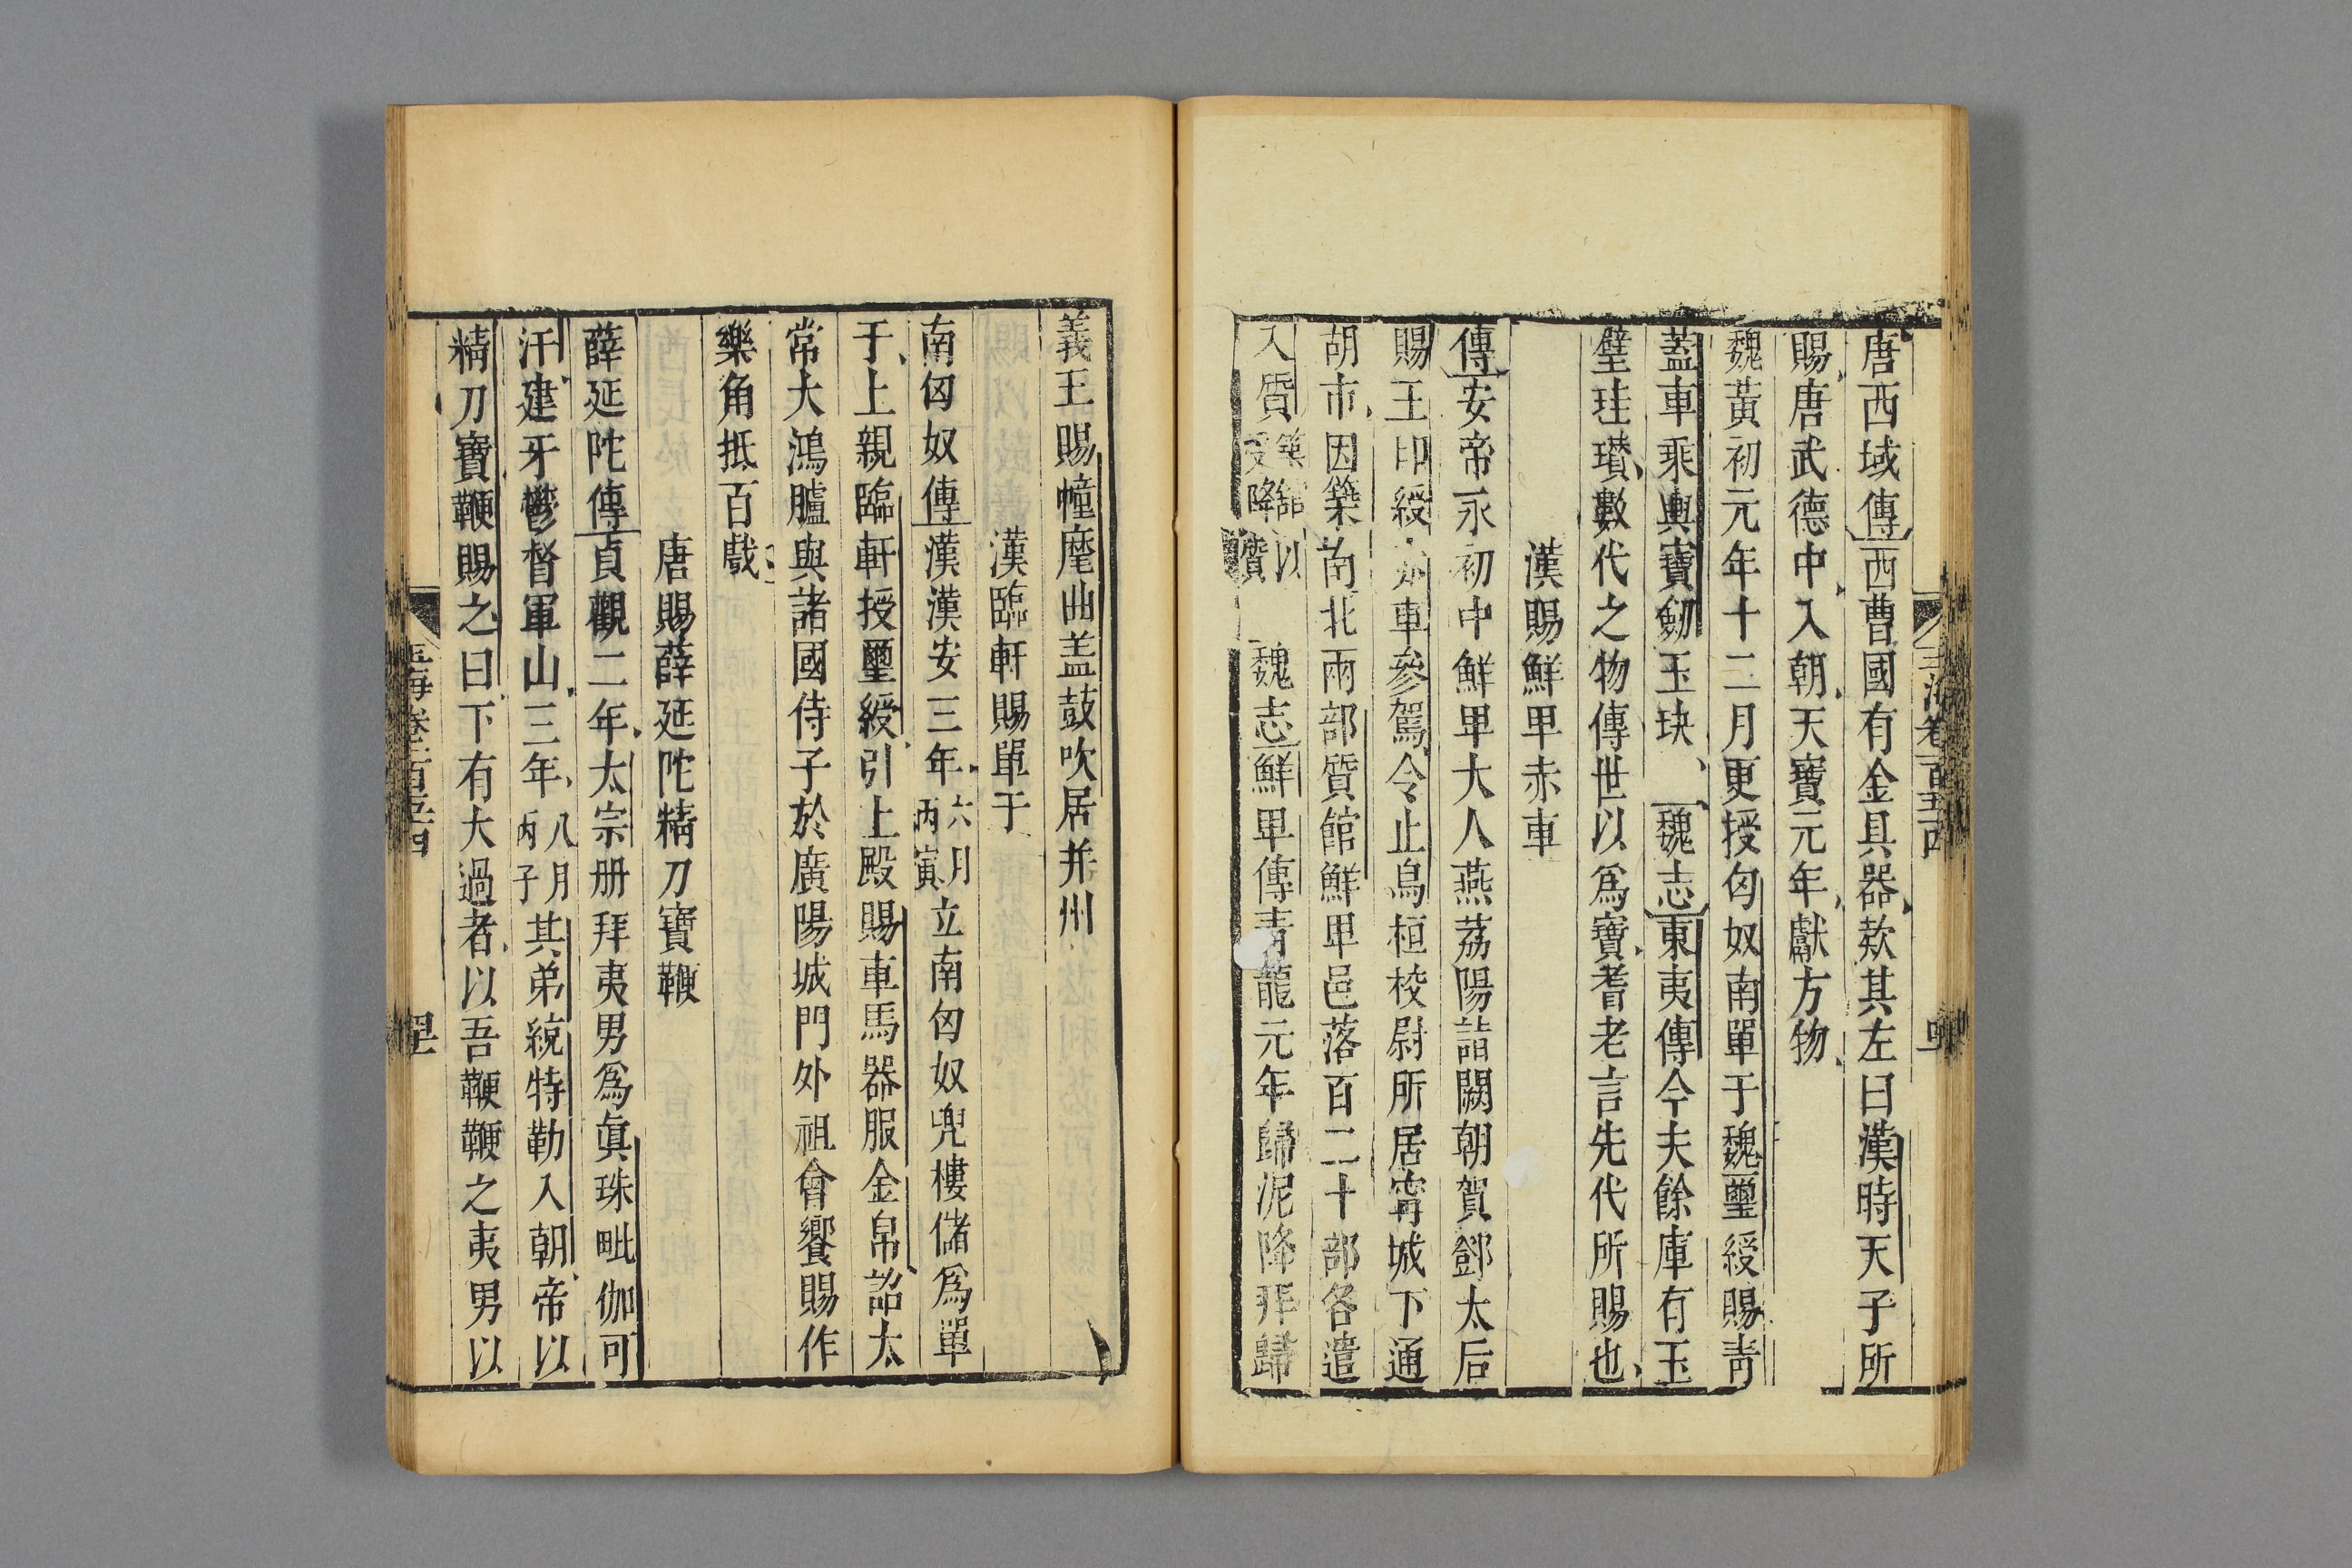 唐西域傳西曹國有金具器款其左曰漢時天子所
賜唐武德中入朝天寶元年獻方物
魏黃初元年十二月更授匈奴南單于魏璽綬賜靑
蓋車乘輿寶劒玉玦 魏志東夷傳今夫餘庫有玉
璧珪瓚數代之物傳世以爲寶耆老言先代所賜也
漢賜鮮卑赤車
傳安帝永初中鮮卑大人燕荔陽詣闕朝賀鄧太后
賜王印綬赤車參駕令止烏桓校尉所居甯城下通
胡市因築南北兩部質館鮮卑邑落百二十部各遣
入質築館以受降質 魏志鮮卑傳靑龍元年歸泥降拜歸
義王賜幢麾曲盖鼓吹居并州
漢臨軒賜單于
南匈奴傳漢漢安三年六月丙寅立南匈奴兜樓儲爲單
于上親臨軒授璽綬引上殿賜車馬器服金帛詔太
常大鴻臚與諸國侍子於廣陽城門外祖會饗賜作
樂角抵百戲
唐賜薛延陀精刀寶鞭
薛延陀傳貞觀二年太宗册拜夷男爲眞珠毗伽可
汗建牙鬱督軍山三年八月丙子其弟統特勒入朝帝以
精刀寶鞭賜之曰下有大過者以吾鞭鞭之夷男以
玉海卷一百五十四